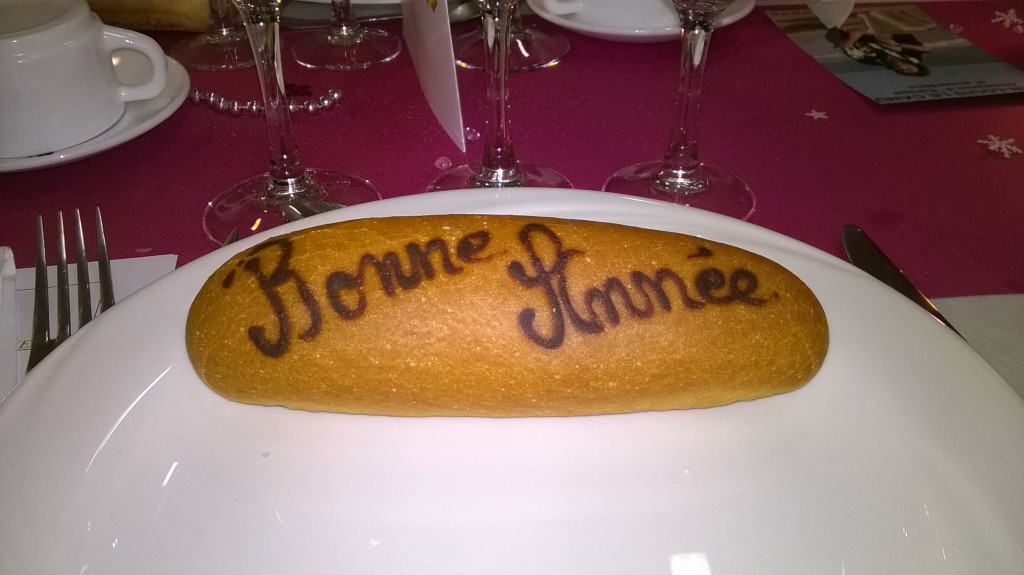 Bonne Année